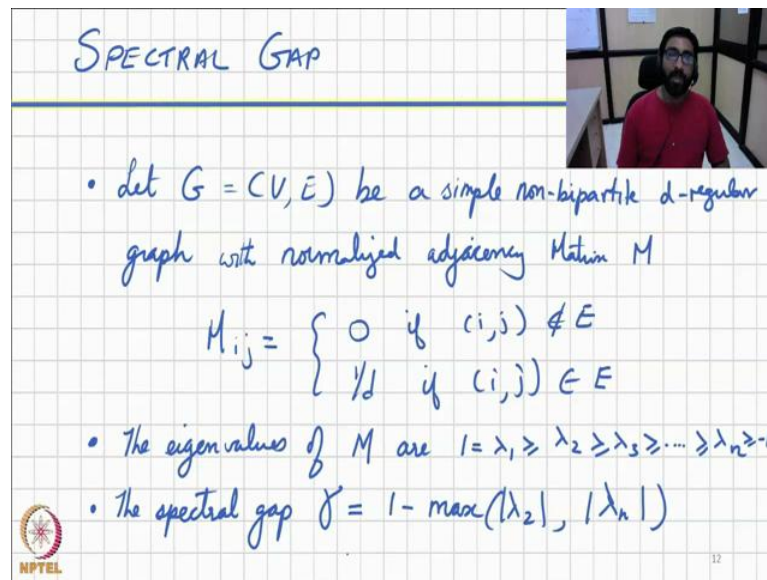 SPECTRAL GAP
• Let G = (V, E) be a simple non-bipartite d-regular
graph with normalized adjacency Matrix M
M_ij = { 0 if (i,j) ∉ E
1/d if (i,j) ∈ E
• The eigenvalues of M are 1 = λ₁ ≥ λ₂ ≥ λ₃ ≥ .... ≥ λₙ ≥ -
• The spectral gap γ = 1 - max(|λ₂|, |λₙ|)
NPTEL
12